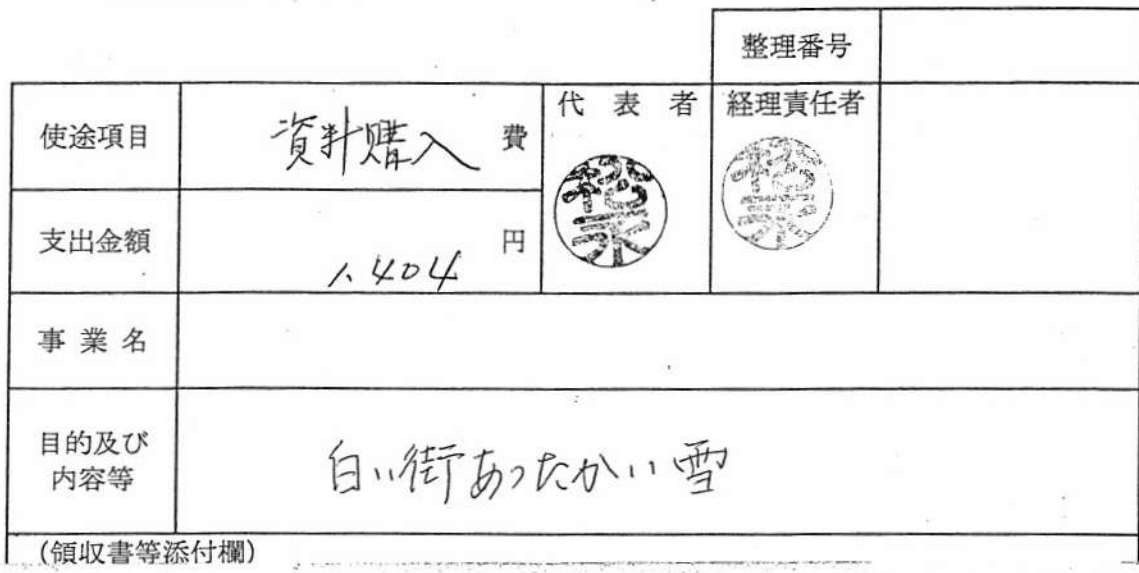 整理番号
使途項目 資料購入 費 代表者 経理責任者
松永 松永
支出金額 1.404 円
事業名
目的及び
内容等
白い街あったかい雪
(領収書等添付欄)